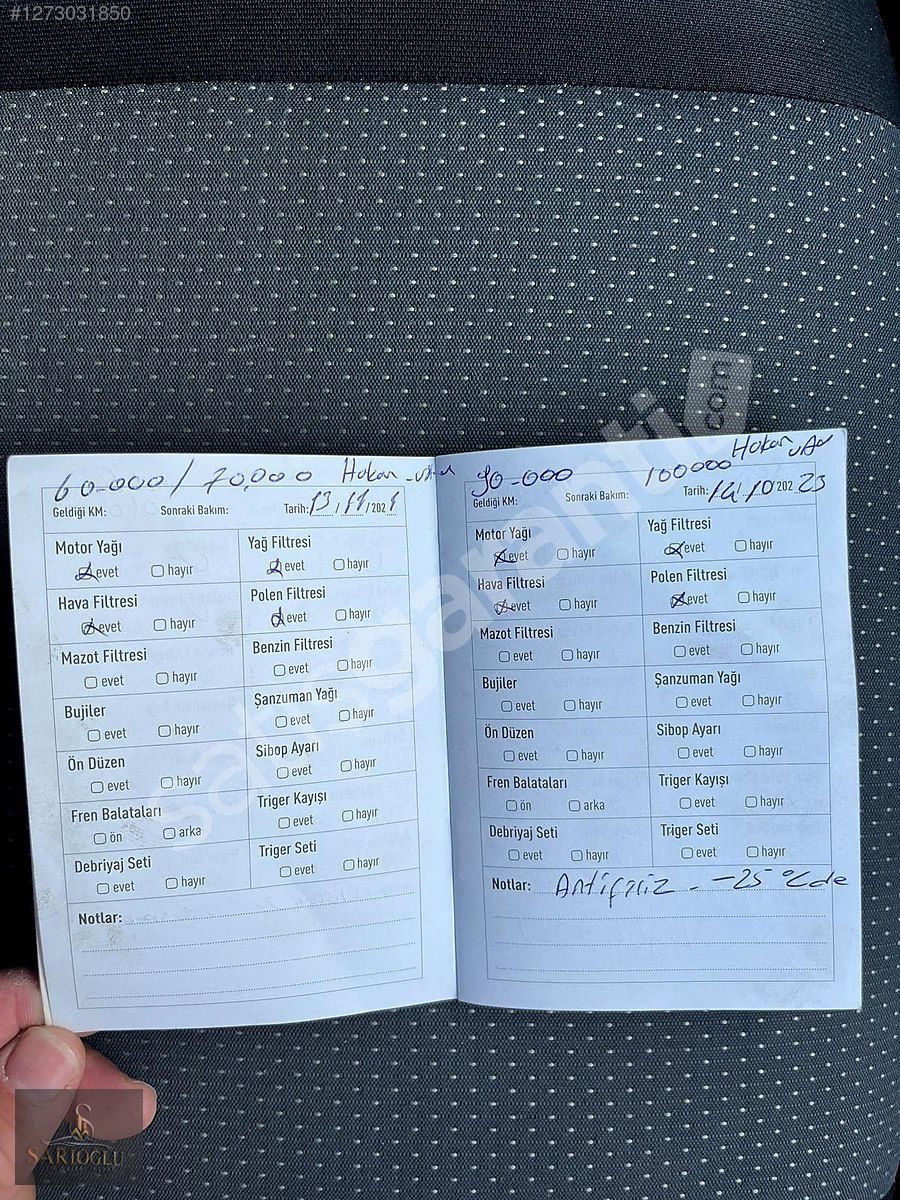 #1273031850
sarı garanti.com
60-000 / 70.000 Hakan
Geldiği KM: Sonraki Bakım: Tarih: 13/11/2021
Motor Yağı Yağ Filtresi
evet hayır evet hayır
Hava Filtresi Polen Filtresi
evet hayır evet hayır
Mazot Filtresi Benzin Filtresi
evet hayır evet hayır
Bujiler Şanzuman Yağı
evet hayır evet hayır
Ön Düzen Sibop Ayarı
evet hayır evet hayır
Fren Balataları Triger Kayışı
ön arka evet hayır
Debriyaj Seti Triger Seti
evet hayır evet hayır
Notlar:
90-000 100000 Hakan
Geldiği KM: Sonraki Bakım: Tarih: 14/10 2023
Motor Yağı Yağ Filtresi
evet hayır evet hayır
Hava Filtresi Polen Filtresi
evet hayır evet hayır
Mazot Filtresi Benzin Filtresi
evet hayır evet hayır
Bujiler Şanzuman Yağı
evet hayır evet hayır
Ön Düzen Sibop Ayarı
evet hayır evet hayır
Fren Balataları Triger Kayışı
ön arka evet hayır
Debriyaj Seti Triger Seti
evet hayır evet hayır
Notlar: Antifiriz -25 °C de
SARIOGLU